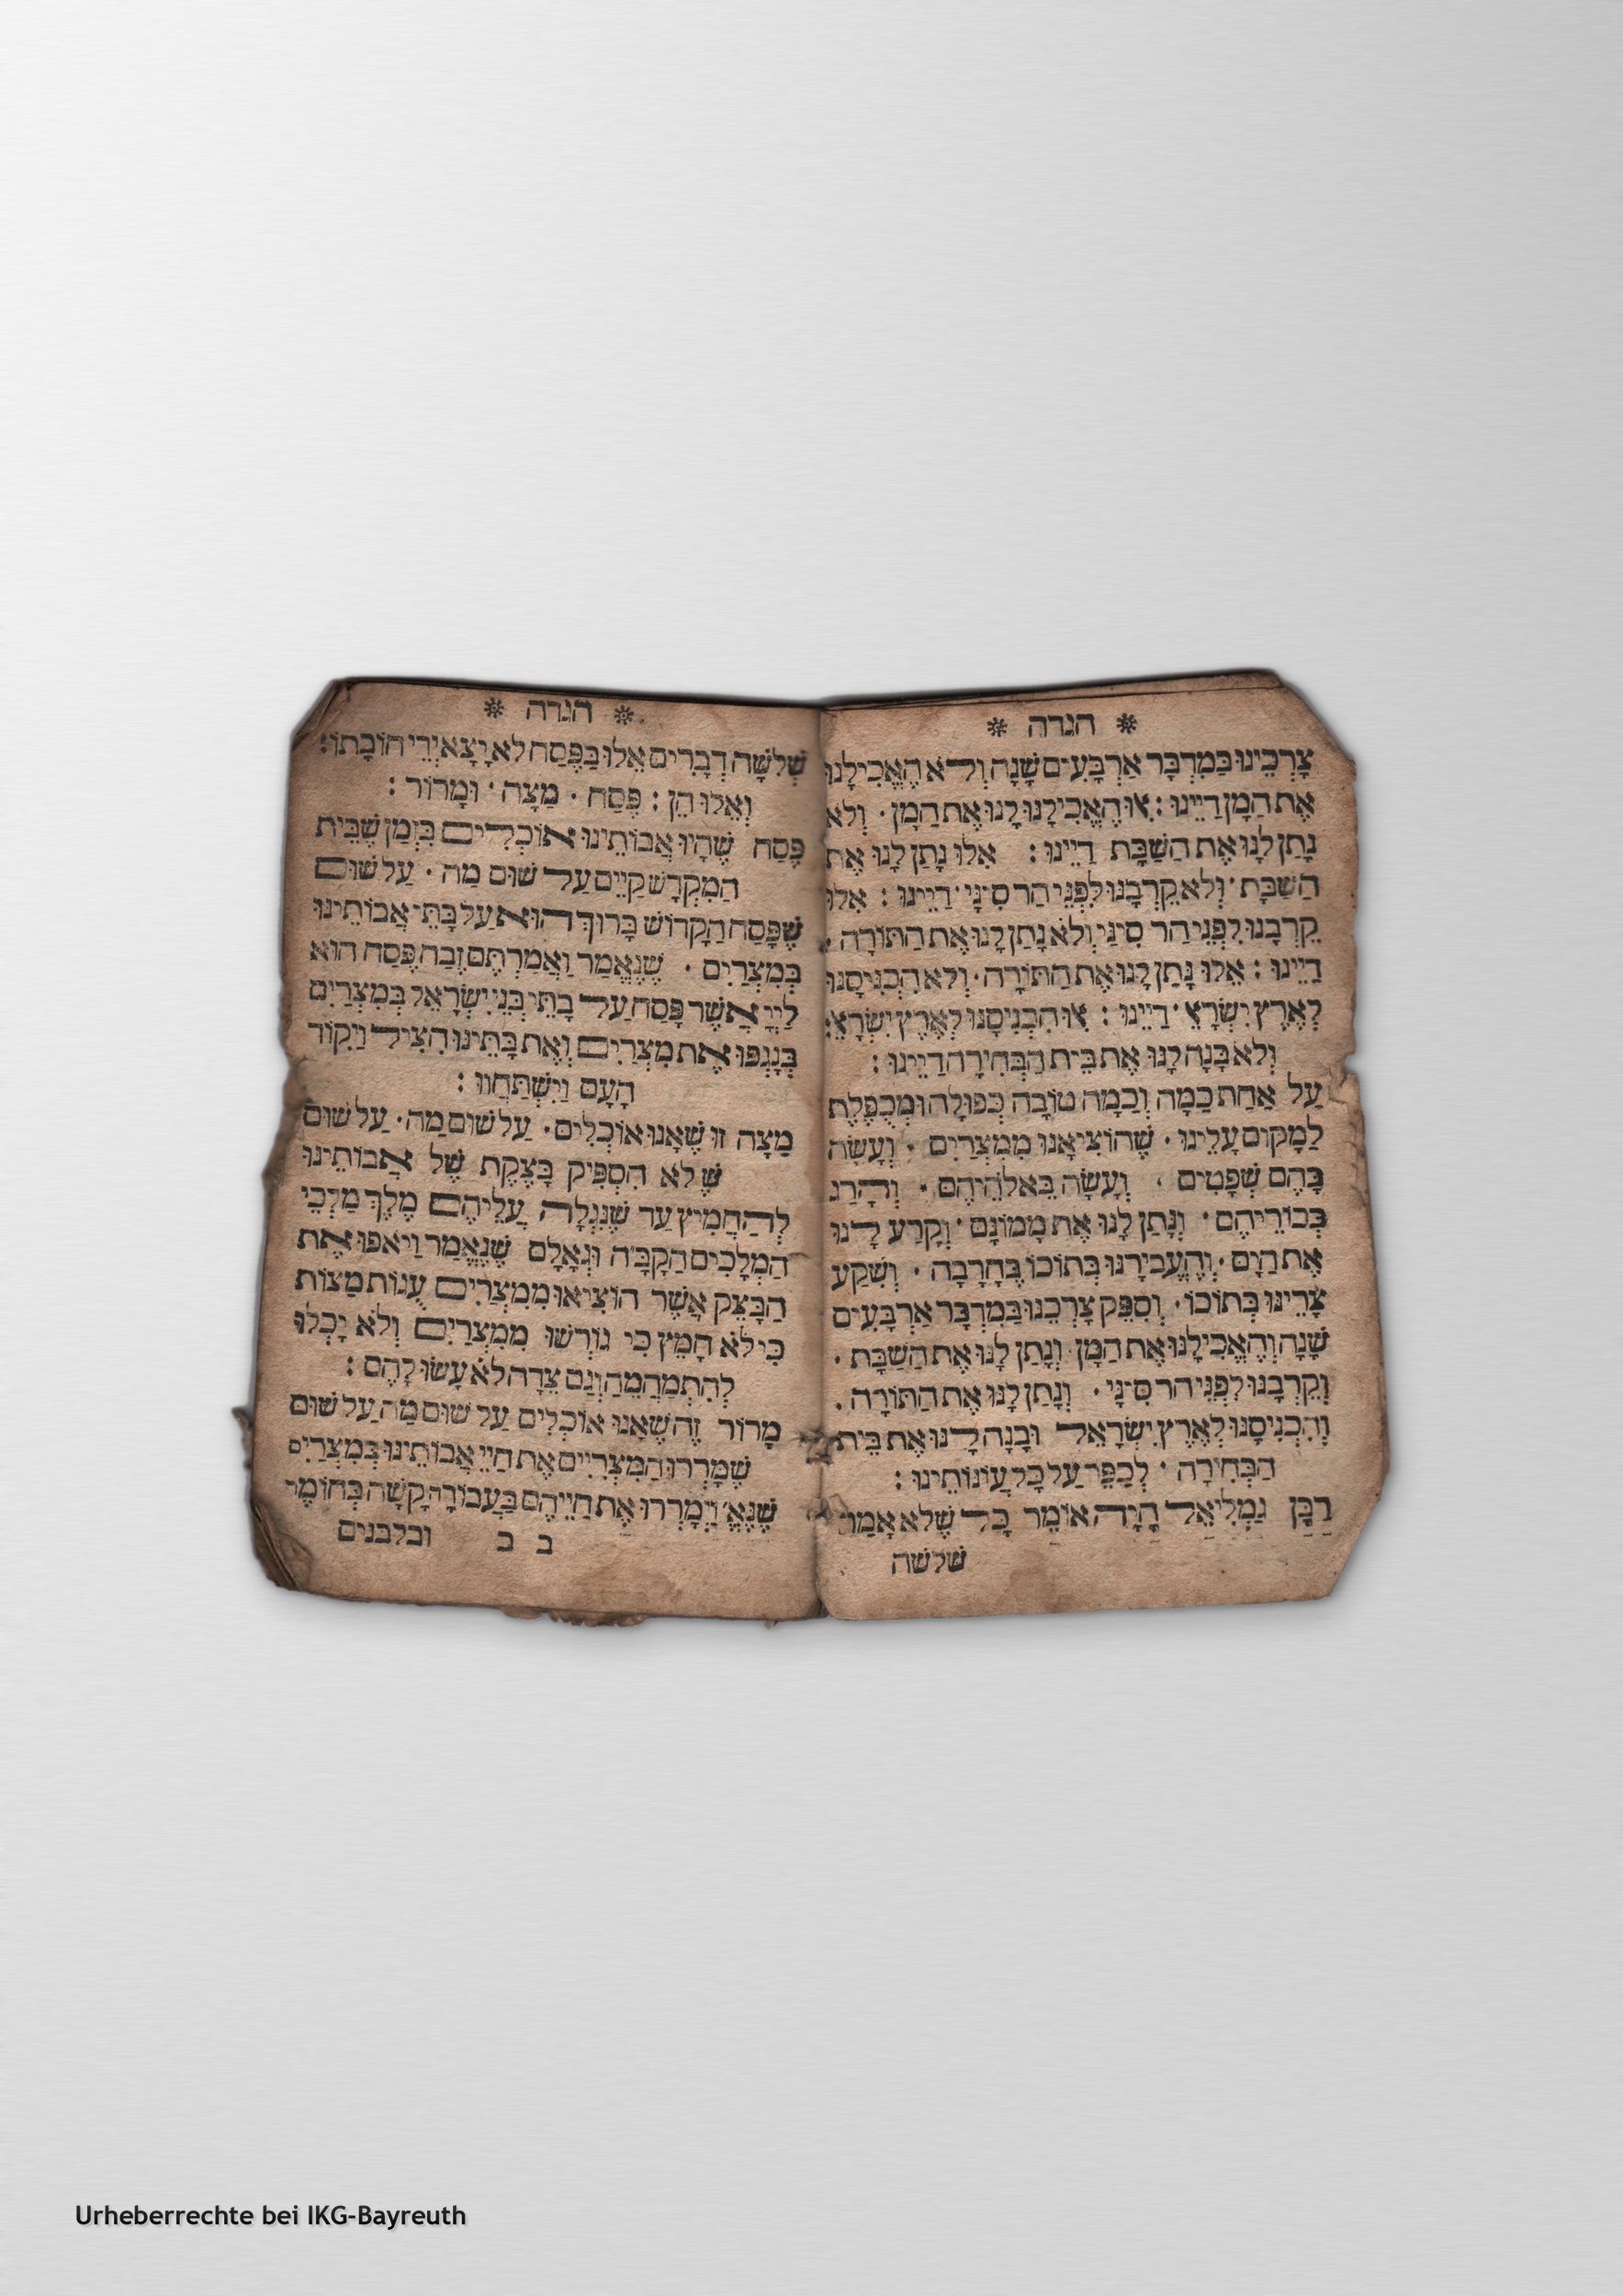 * הגדה *
צָרְכֵּינוּ בַּמִדְבָּר אַרְבָּעִים שָׁנָה וְלֹא הֶאֱכִילָנוּ
אֶת הַמָן דַיֵינוּ : אִוּ הֶאֱכִילָנוּ לָנוּ אֶת הַמָן · וְלֹא
נָתַן לָנוּ אֶת הַשַׁבָּת דַיֵינוּ : אִלוּ נָתַן לָנוּ אֶת
הַשַׁבָּת · וְלֹא קֵרְבָנוּ לִפְנֵי הַר סִינַי · דַיֵינוּ : אִלוּ
קֵרְבָנוּ לִפְנֵי הַר סִינַי וְלֹא נָתַן לָנוּ אֶת הַתּוֹרָה ·
דַיֵינוּ : אִלוּ נָתַן לָנוּ אֶת הַתּוֹרָה · וְלֹא הִכְנִיסָנוּ
לְאֶרֶץ יִשְׂרָאֵ׳ דַיֵינוּ : אִוּ הִכְנִיסָנוּ לְאֶרֶץ יִשְׂרָאֵ׳
וְלֹא בָּנָה לָנוּ אֶת בֵּית הַבְּחִירָה דַיֵינוּ :
עַל אַחַת כַּמָה וְכַמָה טוֹבָה כְּפוּלָה וּמְכֻפֶּלֶת
לַמָקוֹם עָלֵינוּ · שֶׁהוֹצִיאָנוּ מִמִצְרַיִם · וְעָשָׂה
בָּהֶם שְׁפָטִים · וְעָשָׂה בֵּאלֹהֵיהֶם · וְהָרַג
בְּכוֹרֵיהֶם · וְנָתַן לָנוּ אֶת מָמוֹנָם · וְקָרַע לָנוּ
אֶת הַיָם · וְהֶעֱבִירָנוּ בְּתוֹכוֹ בֶּחָרָבָה · וְשִׁקַע
צָרֵינוּ בְּתוֹכוֹ · וְסִפֵּק צָרְכֵּנוּ בַּמִדְבָּר אַרְבָּעִים
שָׁנָה וְהֶאֱכִילָנוּ אֶת הַמָן וְנָתַן לָנוּ אֶת הַשַׁבָּת ·
וְקֵרְבָנוּ לִפְנֵי הַר סִינַי · וְנָתַן לָנוּ אֶת הַתּוֹרָה ·
וְהִכְנִיסָנוּ לְאֶרֶץ יִשְׂרָאֵל וּבָנָה לָנוּ אֶת בֵּית
הַבְּחִירָה · לְכַפֵּר עַל כָּל עֲוֹנוֹתֵינוּ :
רַבָּן גַמְלִיאֵל הָיָה אוֹמֵר כָּל שֶׁלֹא אָמַר
שלשה
* הגדה *
שְׁלשָׁה דְבָרִים אֵלוּ בַּפֶּסַח לֹא יָצָא יְדֵי חוֹבָתוֹ :
וְאֵלוּ הֵן : פֶּסַח · מַצָה · וּמָרוֹר :
פֶּסַח שֶׁהָיוּ אֲבוֹתֵינוּ אוֹכְלִים בִּזְמַן שֶׁבֵּית
הַמִקְדָשׁ קַיֵים עַל שׁוּם מַה · עַל שׁוּם
שֶׁפָּסַח הַקָדוֹשׁ בָּרוּךְ הוּא עַל בָּתֵּי אֲבוֹתֵינוּ
בְּמִצְרַיִם · שֶׁנֶאֱמַר וַאֲמַרְתֶּם זֶבַח פֶּסַח הוּא
לַיְיָ אֲשֶׁר פָּסַח עַל בָּתֵּי בְּנֵי יִשְׂרָאֵל בְּמִצְרַיִם
בְּנָגְפּוֹ אֶת מִצְרַיִם וְאֶת בָּתֵּינוּ הִצִיל וַיִקוֹד
הָעָם וַיִשְׁתַּחֲווּ :
מַצָה זוּ שֶׁאָנוּ אוֹכְלִים · עַל שׁוּם מַה · עַל שׁוּם
שֶׁלֹא הִסְפִּיק בְּצֶקֶת שֶׁל אֲבוֹתֵינוּ
לְהַחֲמִיץ עַד שֶׁנִגְלָה עֲלֵיהֶם מֶלֶךְ מַלְכֵי
הַמְלָכִים הַקָבָּ״ה וּגְאָלָם שֶׁנֶאֱמַר וַיֹאפוּ אֶת
הַבָּצֵק אֲשֶׁר הוֹצִיאוּ מִמִצְרַיִם עֻגוֹת מַצוֹת
כִּי לֹא חָמֵץ כִּי גוֹרְשׁוּ מִמִצְרַיִם וְלֹא יָכְלוּ
לְהִתְמַהְמֵהַ וְגַם צֵדָה לֹא עָשׂוּ לָהֶם :
מָרוֹר זֶה שֶׁאָנוּ אוֹכְלִים עַל שׁוּם מַה עַל שׁוּם
שֶׁמָרְרוּ הַמִצְרִיִים אֶת חַיֵי אֲבוֹתֵינוּ בְּמִצְרַיִם
שֶׁנֶאֱ׳ וַיְמָרְרוּ אֶת חַיֵיהֶם בַּעֲבוֹדָה קָשָׁה בְּחוֹמֶר
ב ב ובלבנים
Urheberrechte bei IKG-Bayreuth